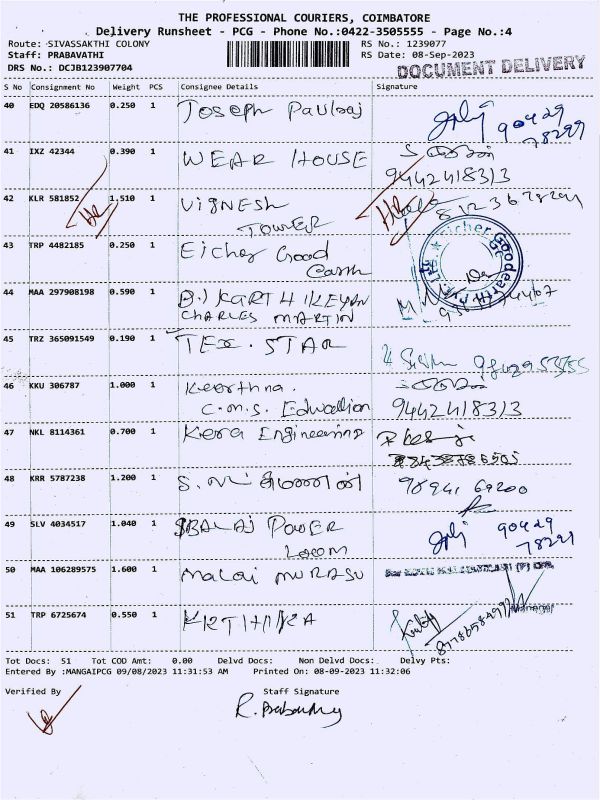 THE PROFESSIONAL COURIERS, COIMBATORE
Delivery Runsheet - PCG - Phone No.:0422-3505555 - Page No.:4
Route: SIVASSAKTHI COLONY RS No.: 1239077
Staff: PRABAVATHI RS Date: 08-Sep-2023
DRS No.: DCJB123907704 DOCUMENT DELIVERY
S No Consignment No Weight PCS Consignee Details Signature
40 EDQ 20586136 0.250 1 Joseph Paulraj 90429
78299
41 IXZ 42344 0.390 1 WEAR HOUSE
9442418313
42 KLR 581852 1.510 1 VIGNESH
TOWER
43 TRP 4482185 0.250 1 Eicher Good
Earth
44 MAA 297908198 0.590 1 B.) KARTHIKEYAN
CHARLES MARTIN
45 TRZ 365091549 0.190 1 TEX. STAR
46 KKU 306787 1.000 1 Keerthna.
C.M.S. Education 9442418313
47 NKL 8114361 0.700 1 Kera Engineering
48 KRR 5787238 1.200 1 98941 69200
49 SLV 4034517 1.040 1 BALAJ POWER 90429
LOOM 78291
50 MAA 106289575 1.600 1 Malai MURASU
51 TRP 6725674 0.550 1 KRTHIKA
Tot Docs: 51 Tot COD Amt: 0.00 Delvd Docs: Non Delvd Docs: Delvy Pts:
Entered By :MANGAIPCG 09/08/2023 11:31:53 AM Printed On: 08-09-2023 11:32:06
Verified By Staff Signature